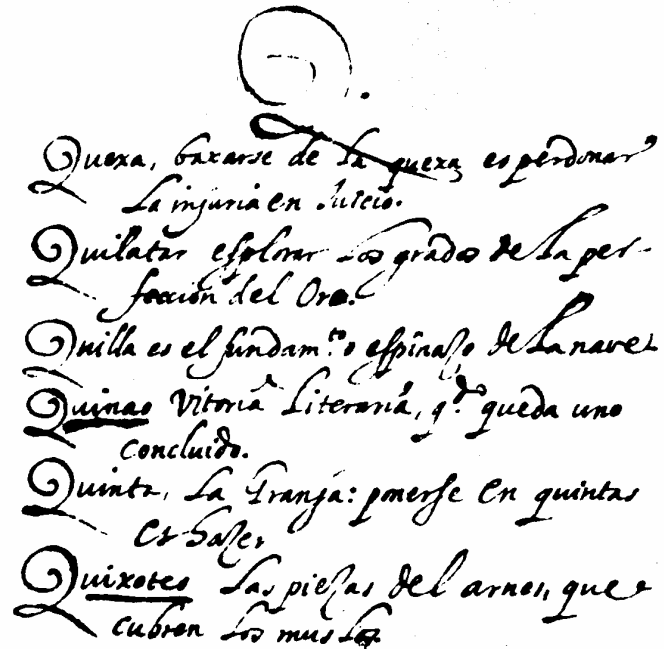 Q.
Quexa, baxarse de la quexa es perdonar
La injuria en Juicio.
Quilatar esplorar Los grados de La per-
feccion del Oro.
Quilla es el fundam.to o espinazo de La nave
Quinao Vitoria Literaria, q.do queda uno
concluido.
Quinta, La Granja: ponerse en quintas
es hazer
Quixotes Las piezas del arnes, que
cubren Los muslos.